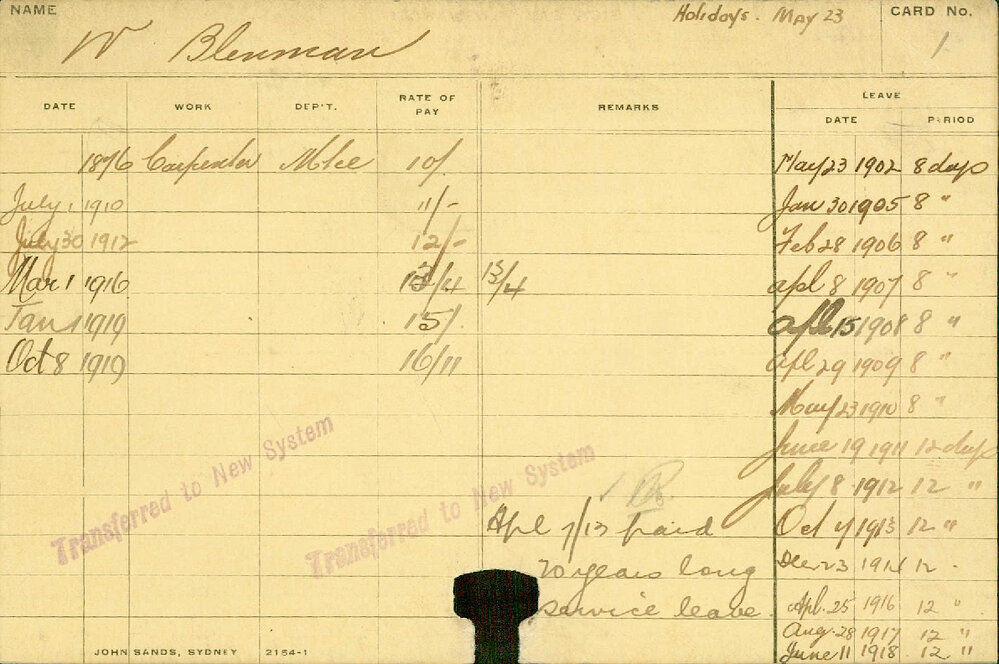 NAME W Blenman Holidays. May 23 CARD No. 1
DATE WORK DEP'T. RATE OF PAY REMARKS LEAVE
DATE PERIOD
1876 Carpenter 10/. May 23 1902 8 days
July 1 1910 11/- Jan 30 1905 8 "
July 30 1912 12/- Feb 28 1906 8 "
Mar 1 1916 13/4 13/4 apl 8 1907 8 "
Jan 1 1919 15/. apl 15 1908 8 "
Oct 8 1919 16/11 apl 29 1909 8 "
May 23 1910 8 "
June 19 1911 12 days
July 8 1912 12 "
Transferred to New System
Transferred to New System
Apl 7/13 paid Oct 4 1913 12 "
20 years long Dec 23 1914 12 .
service leave. Apl. 25 1916 12 "
Aug. 28 1917 12 "
June 11 1918 12 "
JOHN SANDS, SYDNEY 2154-1